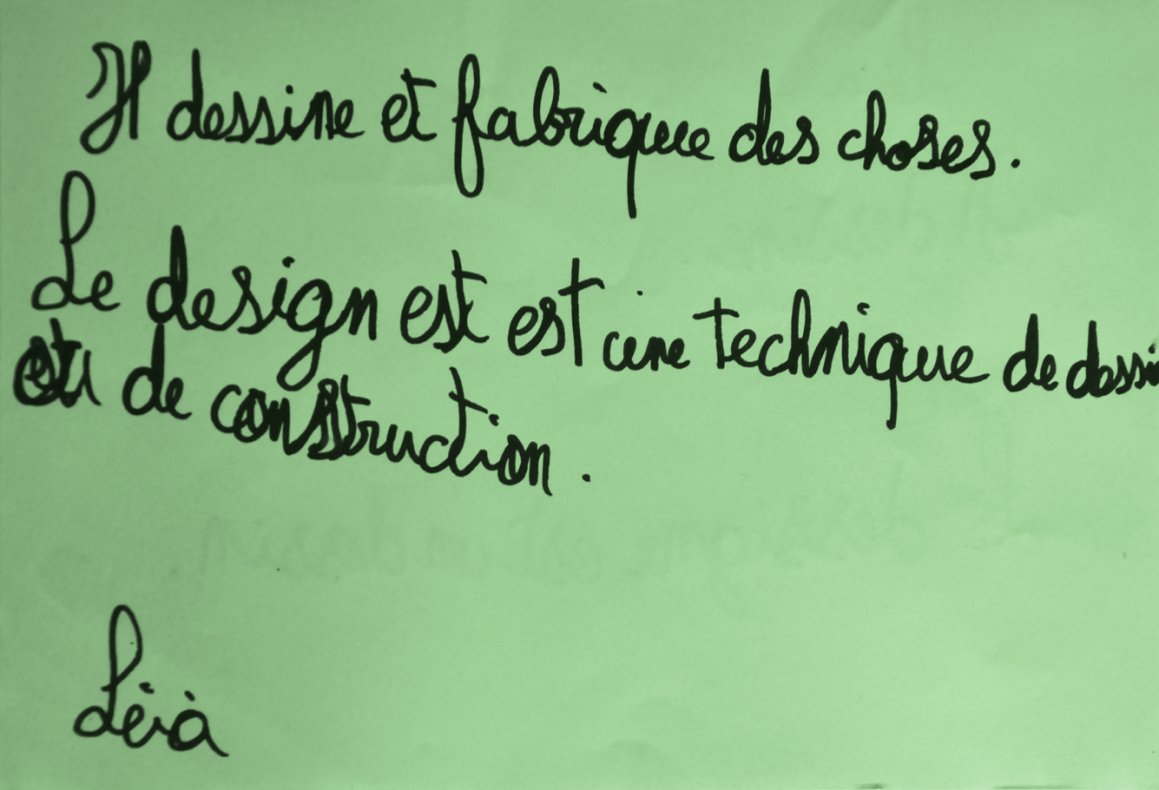 Il dessine et fabrique des choses.
Le design est est une technique de dessi
ou de construction.
Léià